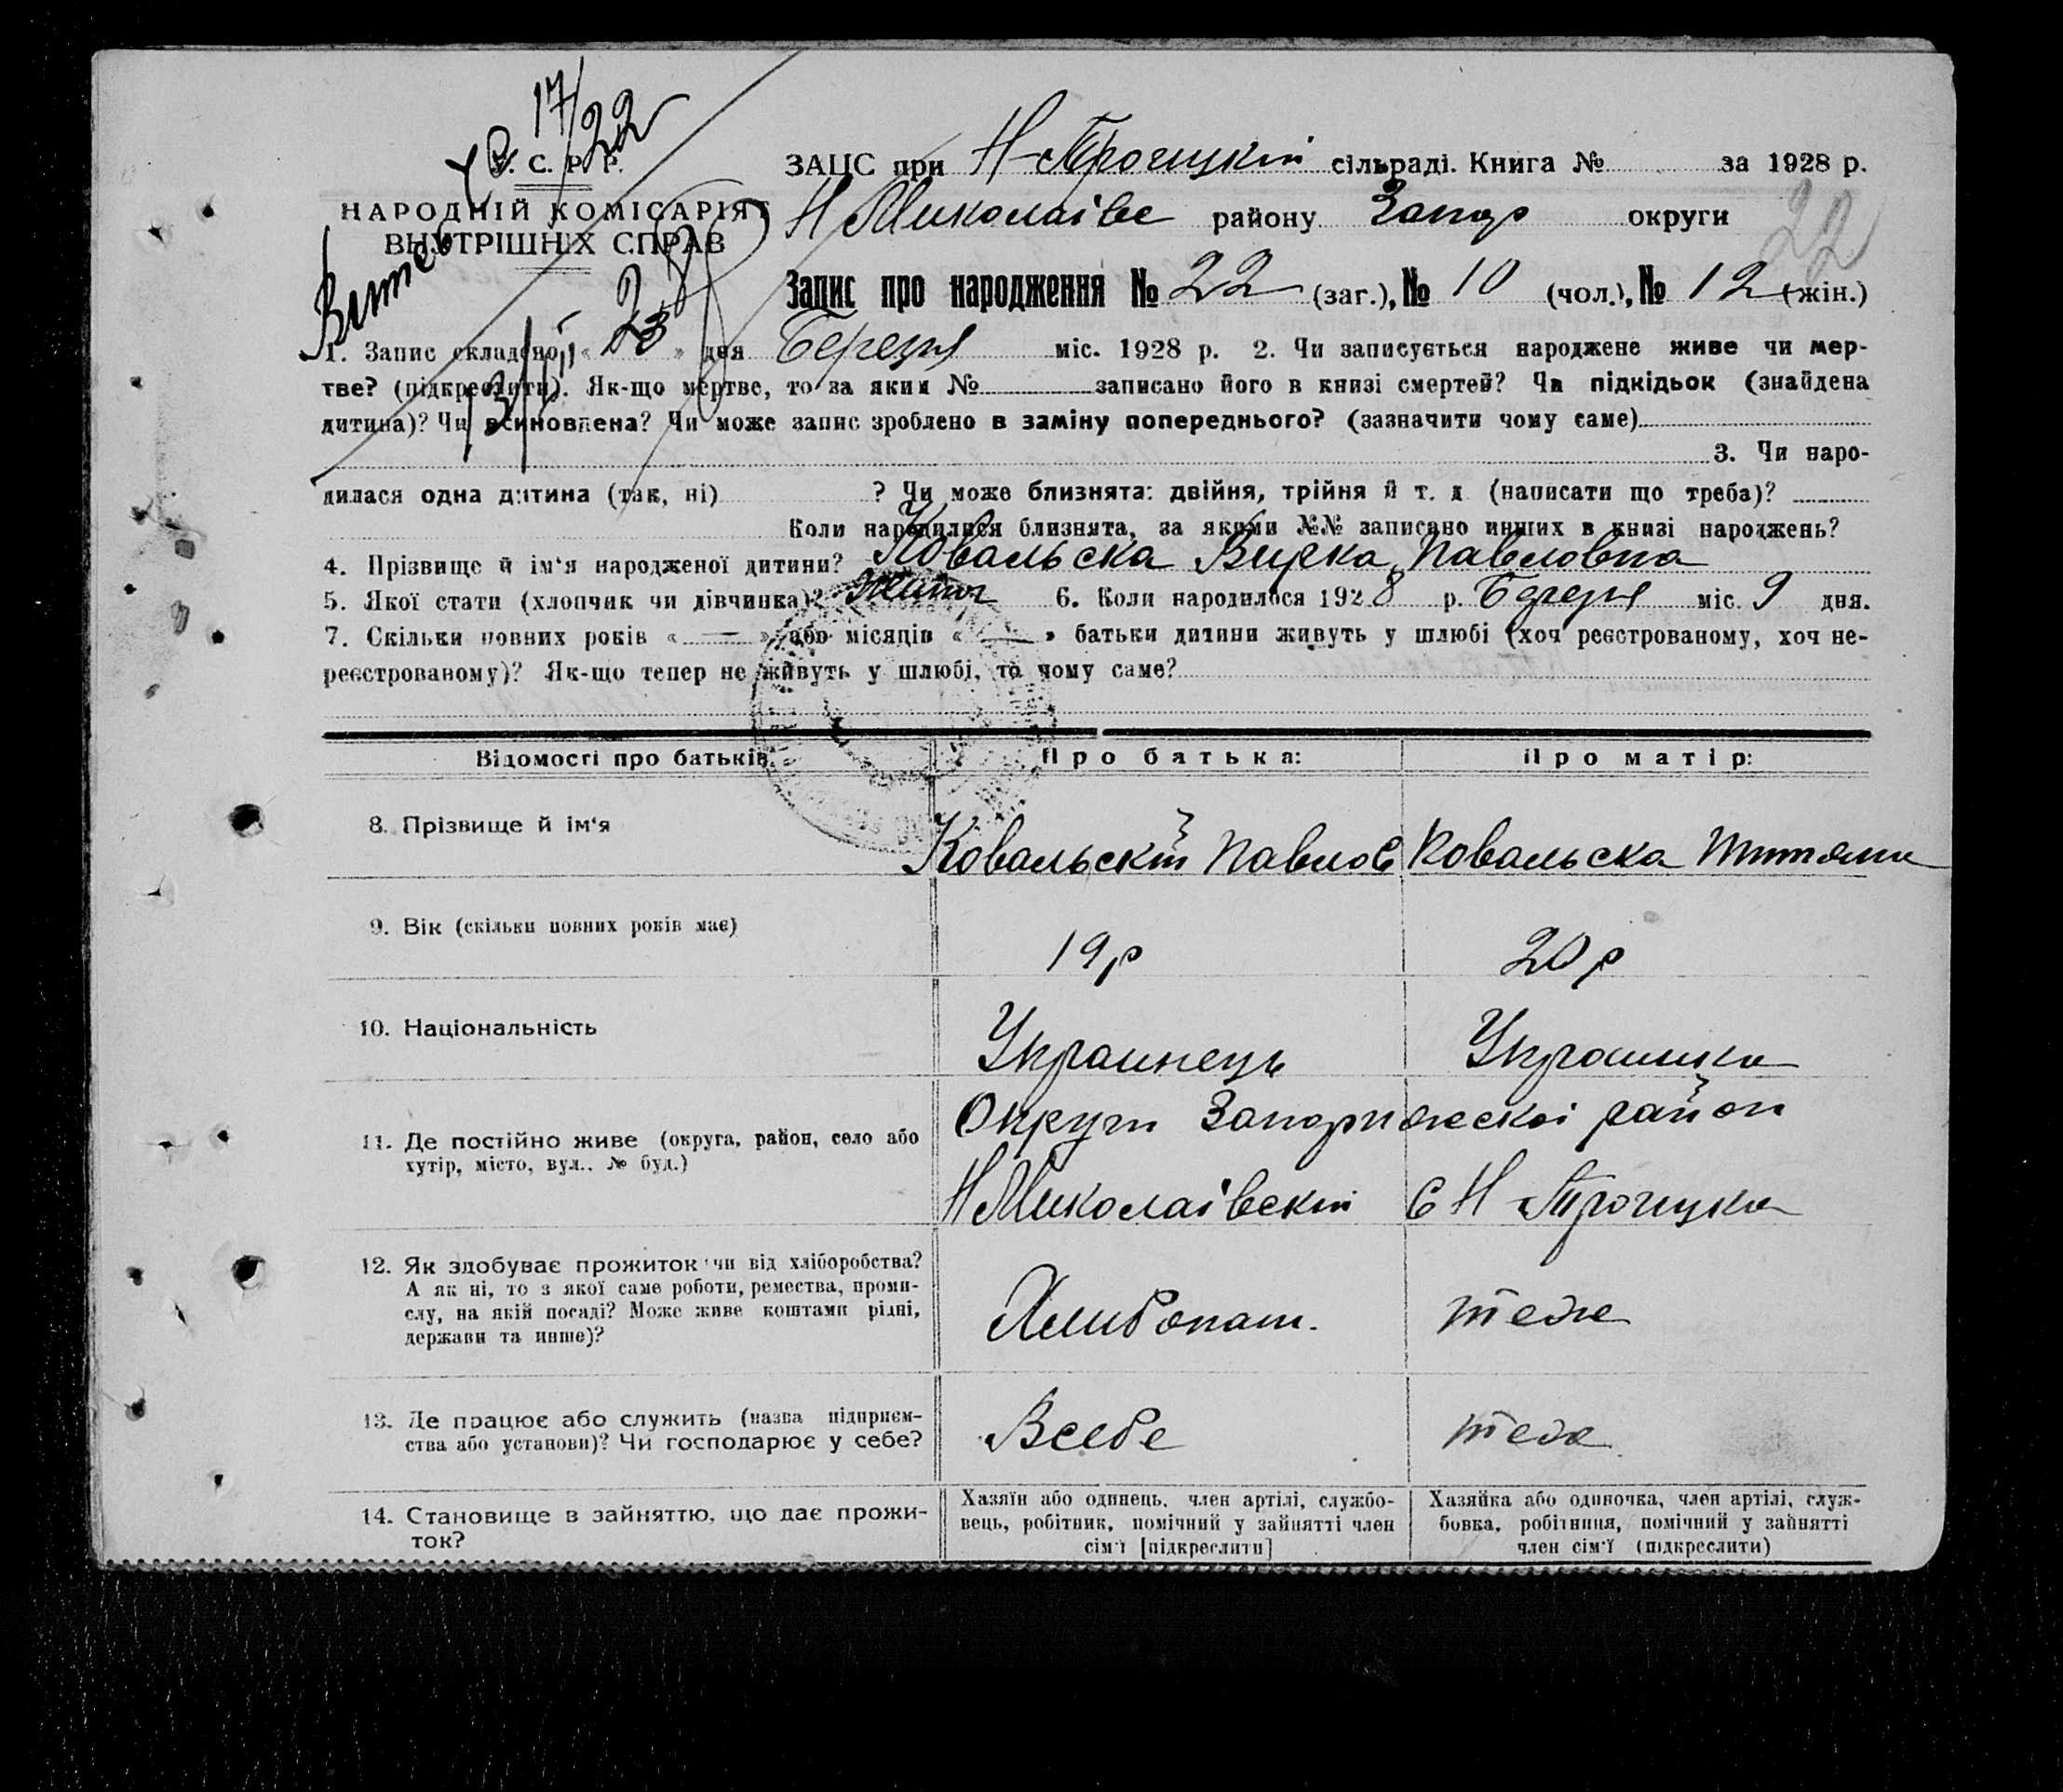 17/22
У. С. Р. Р.
НАРОДНІЙ КОМІСАРІЯТ
ВНУТРІШНІХ СПРАВ
ЗАЦС при Н-Троицкій сільраді. Книга № за 1928 р.
Н Миколаівс району Запор округи
22
Запис про народження № 22 (заг.), № 10 (чол.), № 12 (жін.)
1. Запис складено « 23 » дня Березня міс. 1928 р. 2. Чи записується народжене живе чи мер-
тве? (підкреслити). Як-що мертве, то за яким № записано його в книзі смертей? Чи підкідьок (знайдена
дитина)? Чи всиновлена? Чи може запис зроблено в заміну попереднього? (зазначити чому саме)
3. Чи наро-
дилася одна дитина (так, ні) ? Чи може близнята: двійня, трійня й т. д. (написати що треба)?
Коли народилися близнята, за якими №№ записано инших в книзі народжень?
4. Прізвище й ім'я народженої дитини? Ковальска Вирка Павловна
5. Якої стати (хлопчик чи дівчинка)? 6. Коли народилося 1928 р. Березня міс. 9 дня.
7. Скільки повних років « — » або місяців « — » батьки дитини живуть у шлюбі (хоч реєстрованому, хоч не-
реєстрованому)? Як-що тепер не живуть у шлюбі, то чому саме?
Відомості про батьків Про батька: Про матір:
8. Прізвище й ім'я Ковальский Павло С Ковальска
9. Вік (скільки повних років має) 19 р 20 р
10. Національність Украинець Украинка
11. Де постійно живе (округа, район, село або
хутір, місто, вул.. № буд.)
Округи Запорижскоі район
Н Миколаівский С Н-Троицка
12. Як здобуває прожиток чи від хліборобства?
А як ні, то з якої саме роботи, ремества, проми-
слу, на якій посаді? Може живе коштами рідні,
держави та инше)?
Хлибопаш. теже
13. Де працює або служить (назва підприєм-
ства або установи)? Чи господарює у себе?
Всебе теже
14. Становище в зайняттю, що дає прожи-
ток?
Хазяїн або одинець, член артілі, службо-
вець, робітник, помічний у зайнятті член
сім'ї [підкреслити]
Хазяйка або одиночка, член артілі, служ-
бовка, робітниця, помічний у зайнятті
член сім'ї (підкреслити)